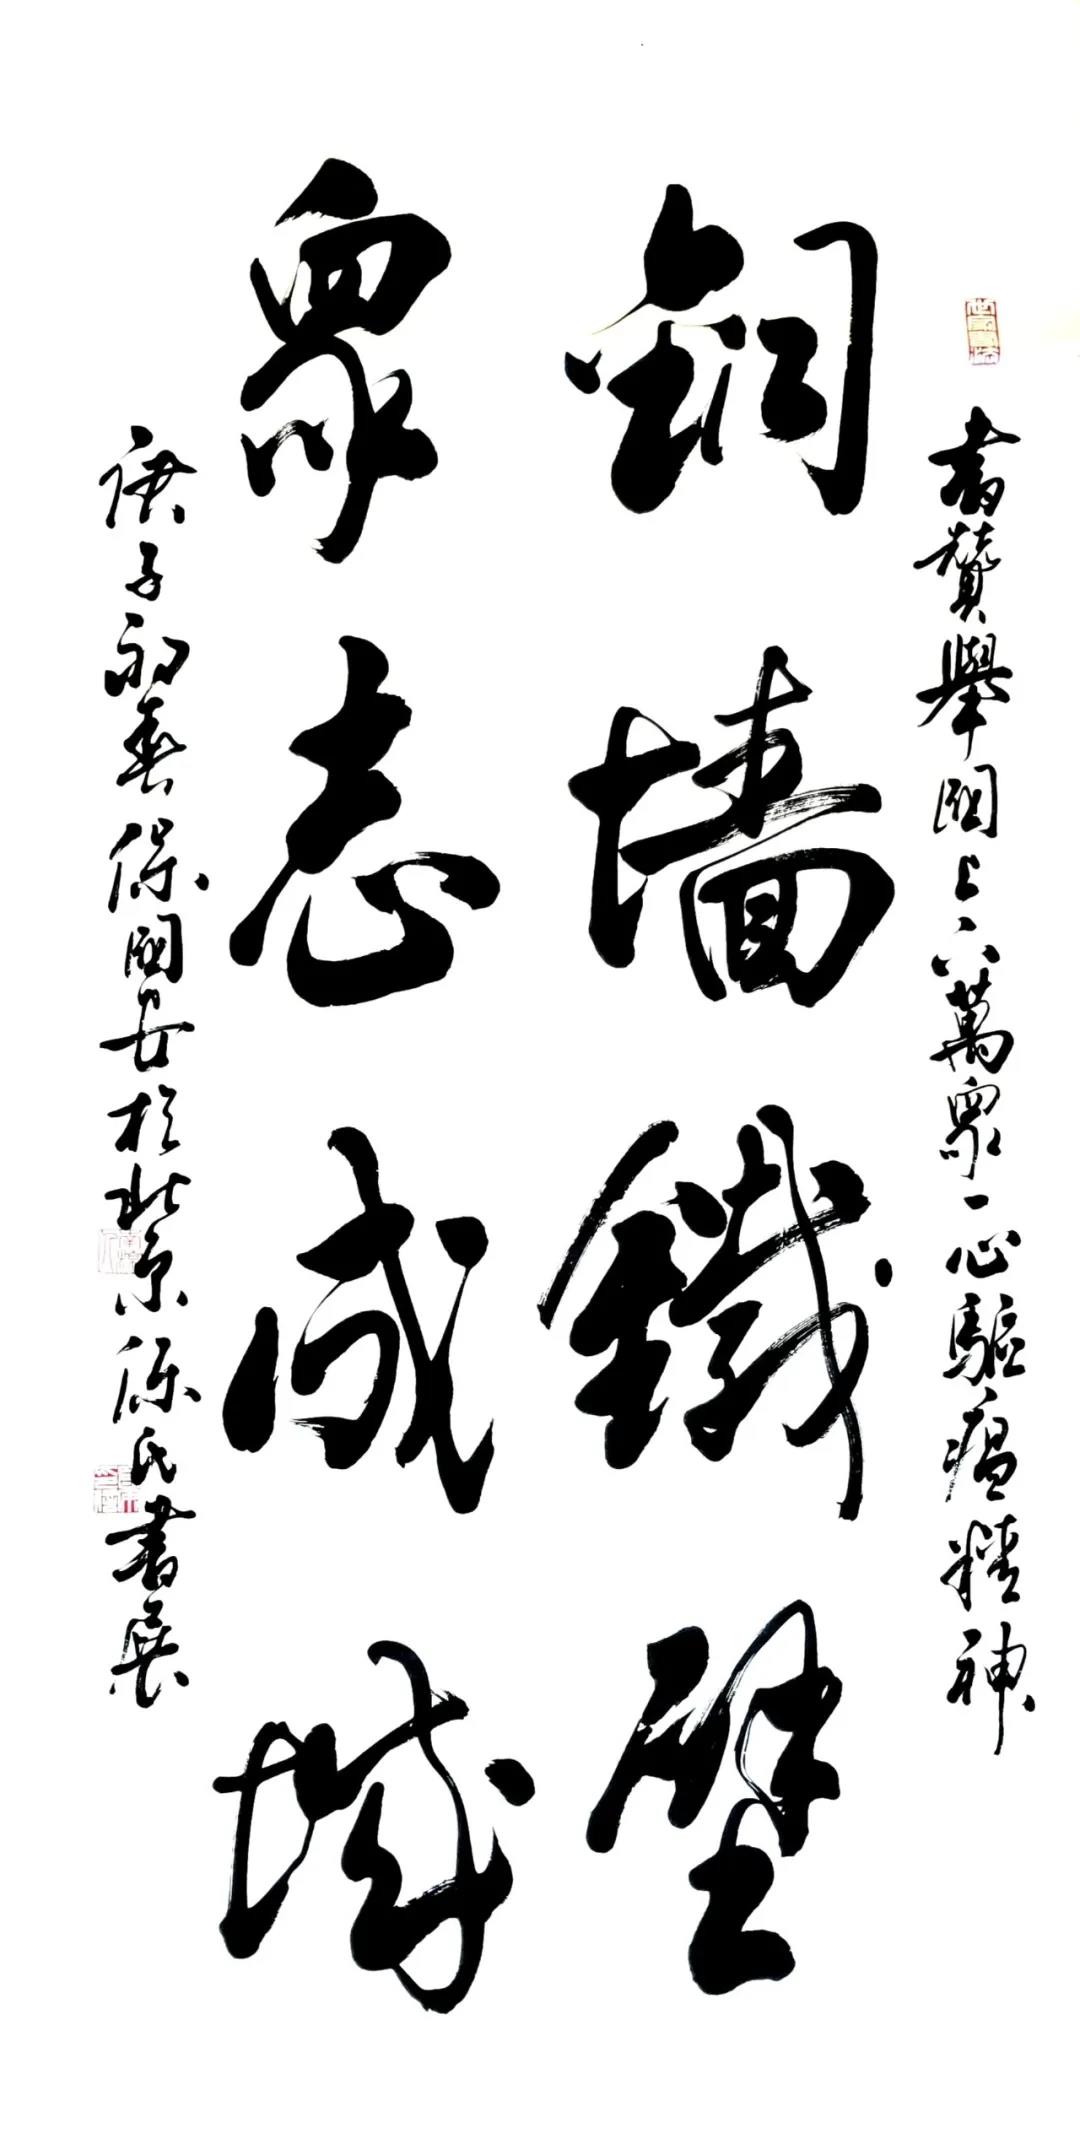 書贊舉國上下萬眾一心驅瘟精神
銅墙鐵壁
眾志成城
庚子初春保國安於北京保氏書展